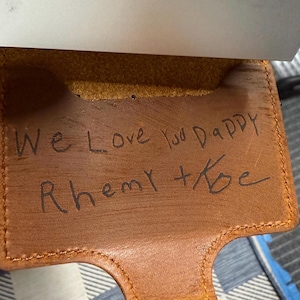 We Love You DaDDY
RhemY + Koe